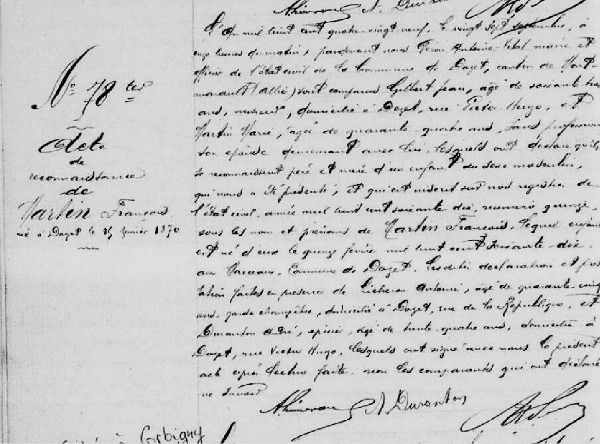 N° 78 ter
Acte
de
reconnaissance
de
Martin François
né à Doyet le 15 janvier 1870
L'an mil huit cent quatre-vingt neuf, le vingt sept septembre, à
onze heures du matin, pardevant nous Antoine maire et
officier de l'état civil de la Commune de Doyet, canton de Mont-
marault (Allier) sont comparus Gilbert Jean, âgé de soixante trois
ans, domicilié à Doyet, rue Victor Hugo, et
Martin Marie, âgée de quarante-quatre ans, sans profession
son épouse demeurant avec lui, lesquels ont déclaré qu'ils
se reconnaissent père et mère d'un enfant du sexe masculin,
qui nous a été présenté, et qui est inscrit sur nos registres de
l'état civil, année mil huit cent soixante dix, numéro quinze,
sous les nom et prénoms de Martin François, lequel enfant
est né d'eux le quinze mil huit cent soixante-dix
au Commune de Doyet. Lesdites déclaration et présen-
tation faites en présence de Antoine, âgé de quarante-cinq
ans, garde champêtre, domicilié à Doyet, rue de la République, et
Duranton André, épicier, âgé de trente-quatre ans, domicilié à
Doyet, rue Victor Hugo, lesquels ont signé avec nous le présent
acte après lecture faite, non les comparants qui ont déclaré
ne savoir
A. Duranton
Corbigny